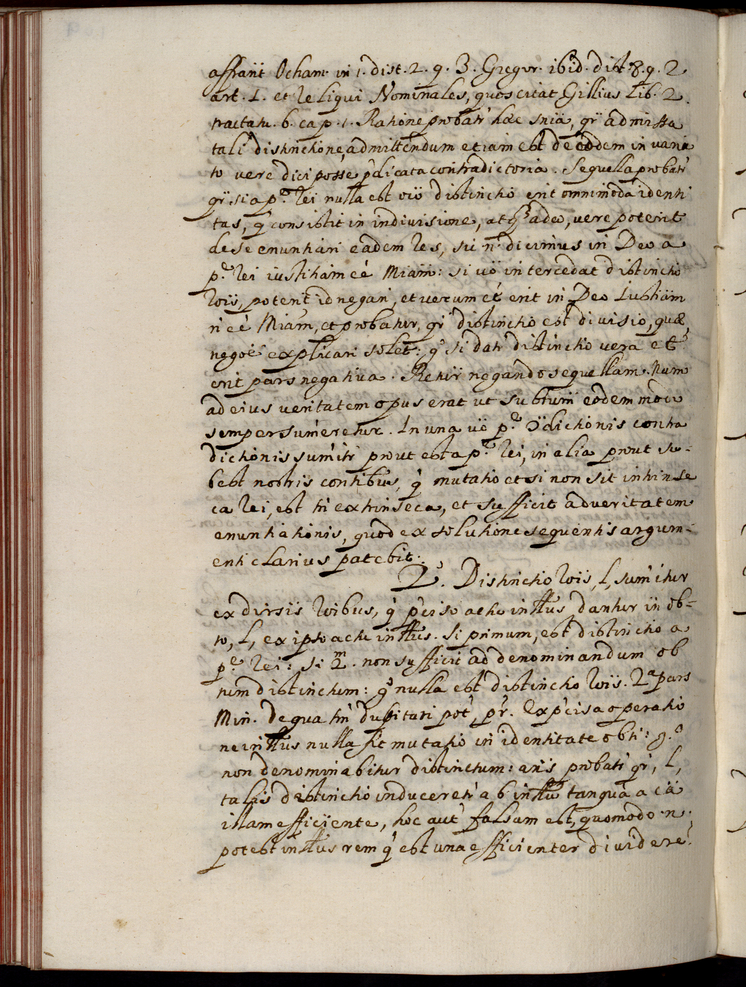 affrãt Ocham. in 1. dist. 2. q. 3. Gregor. ibid. dist. 8. q. 2
art. 1. et reliqui Nominales, quos citat Gillius lib. 2.
tractatu. 6. cap. 1. Ratione probatr̃ hæc snĩa, qr̃ admissa
tali distinctione, admittendum etiam est de eodem in varia
to vere dici posse p̃dicata contradictoria. Sequella probatr̃
qr̃ si a p.te rei nulla est distinctio erit omnimoda identi
tas, q̃ consistit in indivisione, atq; adeo, vere poterit
de se enuntiari eadem res, sic n̉ dicimus in Deo a
p.te rei iustitiam eẽ Miam̃: si vo intercedat distinctio
rõis, poterit id negari, et verum eẽ erit in Deo Iustiam̃
n̉ eẽ Miam̃, et probatur, qr̃ distinctio est divisio, quæ
negõe explicari solet: gº si datr̃ distinctio vera et
erit pars negativa. Rẽtur negando sequellam. Nam
ad eius veritatem opus erat ut subtum̃ eodem modo
semper sumeretur. In una vo p.te contra
dictionis sumitr̃ prout est a p.te rei, in alia prout su-
best nostris cõntibus, q̃ mutatio etsi non sit intrinse
ca rei, est tñ extrinseca, et sufficit ad veritatem
enuntiationis, quod ex solutione sequentis argum
enti clarius patebit.
2º. Distinctio rõis, l, sumitur
ex diversis rõibus, q̃ p̃ciso actu intt̃us dantur in ob-
to, l, ex ipso actu intt̃us. Si primum, est distinctio a
p.te rei: si 2.m non sufficit ad denominandum ob
tum distinctum: gº nulla est distinctio rõis. 2.a pars
Min. de qua tñ dubitari pot̃, pr̃. Ex p̃cisa operatio
ne intt̃us nulla fit mutatio in identitate obti: g.º
non denominabitur distinctum: añs probatr̃ qr̃, l,
talis distinctio induceretr̃ ab intt̃u tanquã a cã
illam efficiente, hoc aut̃ falsum est, quomodo n.
potest intt̃us rem q̃ est una efficienter dividere?